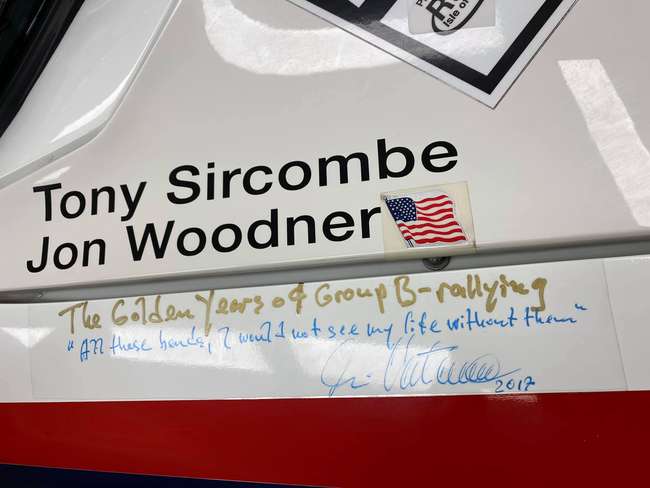 Isle of
Tony Sircombe
Jon Woodner
The Golden Years of Group B-rallying
"All these bends, I would not see my life without them"
Ari Vatanen 2017